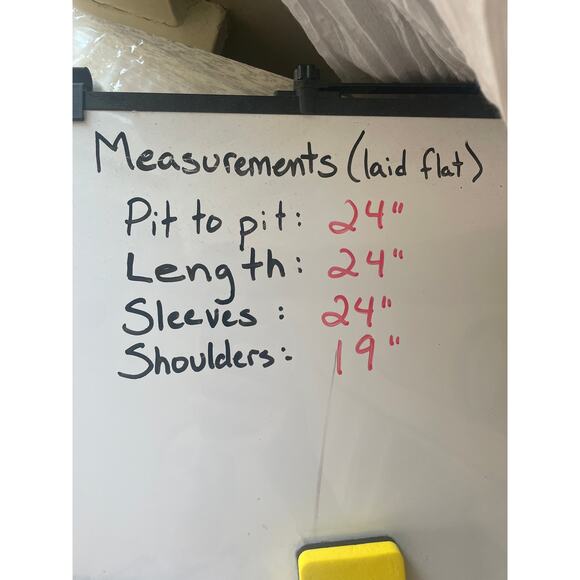 Measurements (laid flat)
Pit to pit: 24"
Length: 24"
Sleeves: 24"
Shoulders: 19"